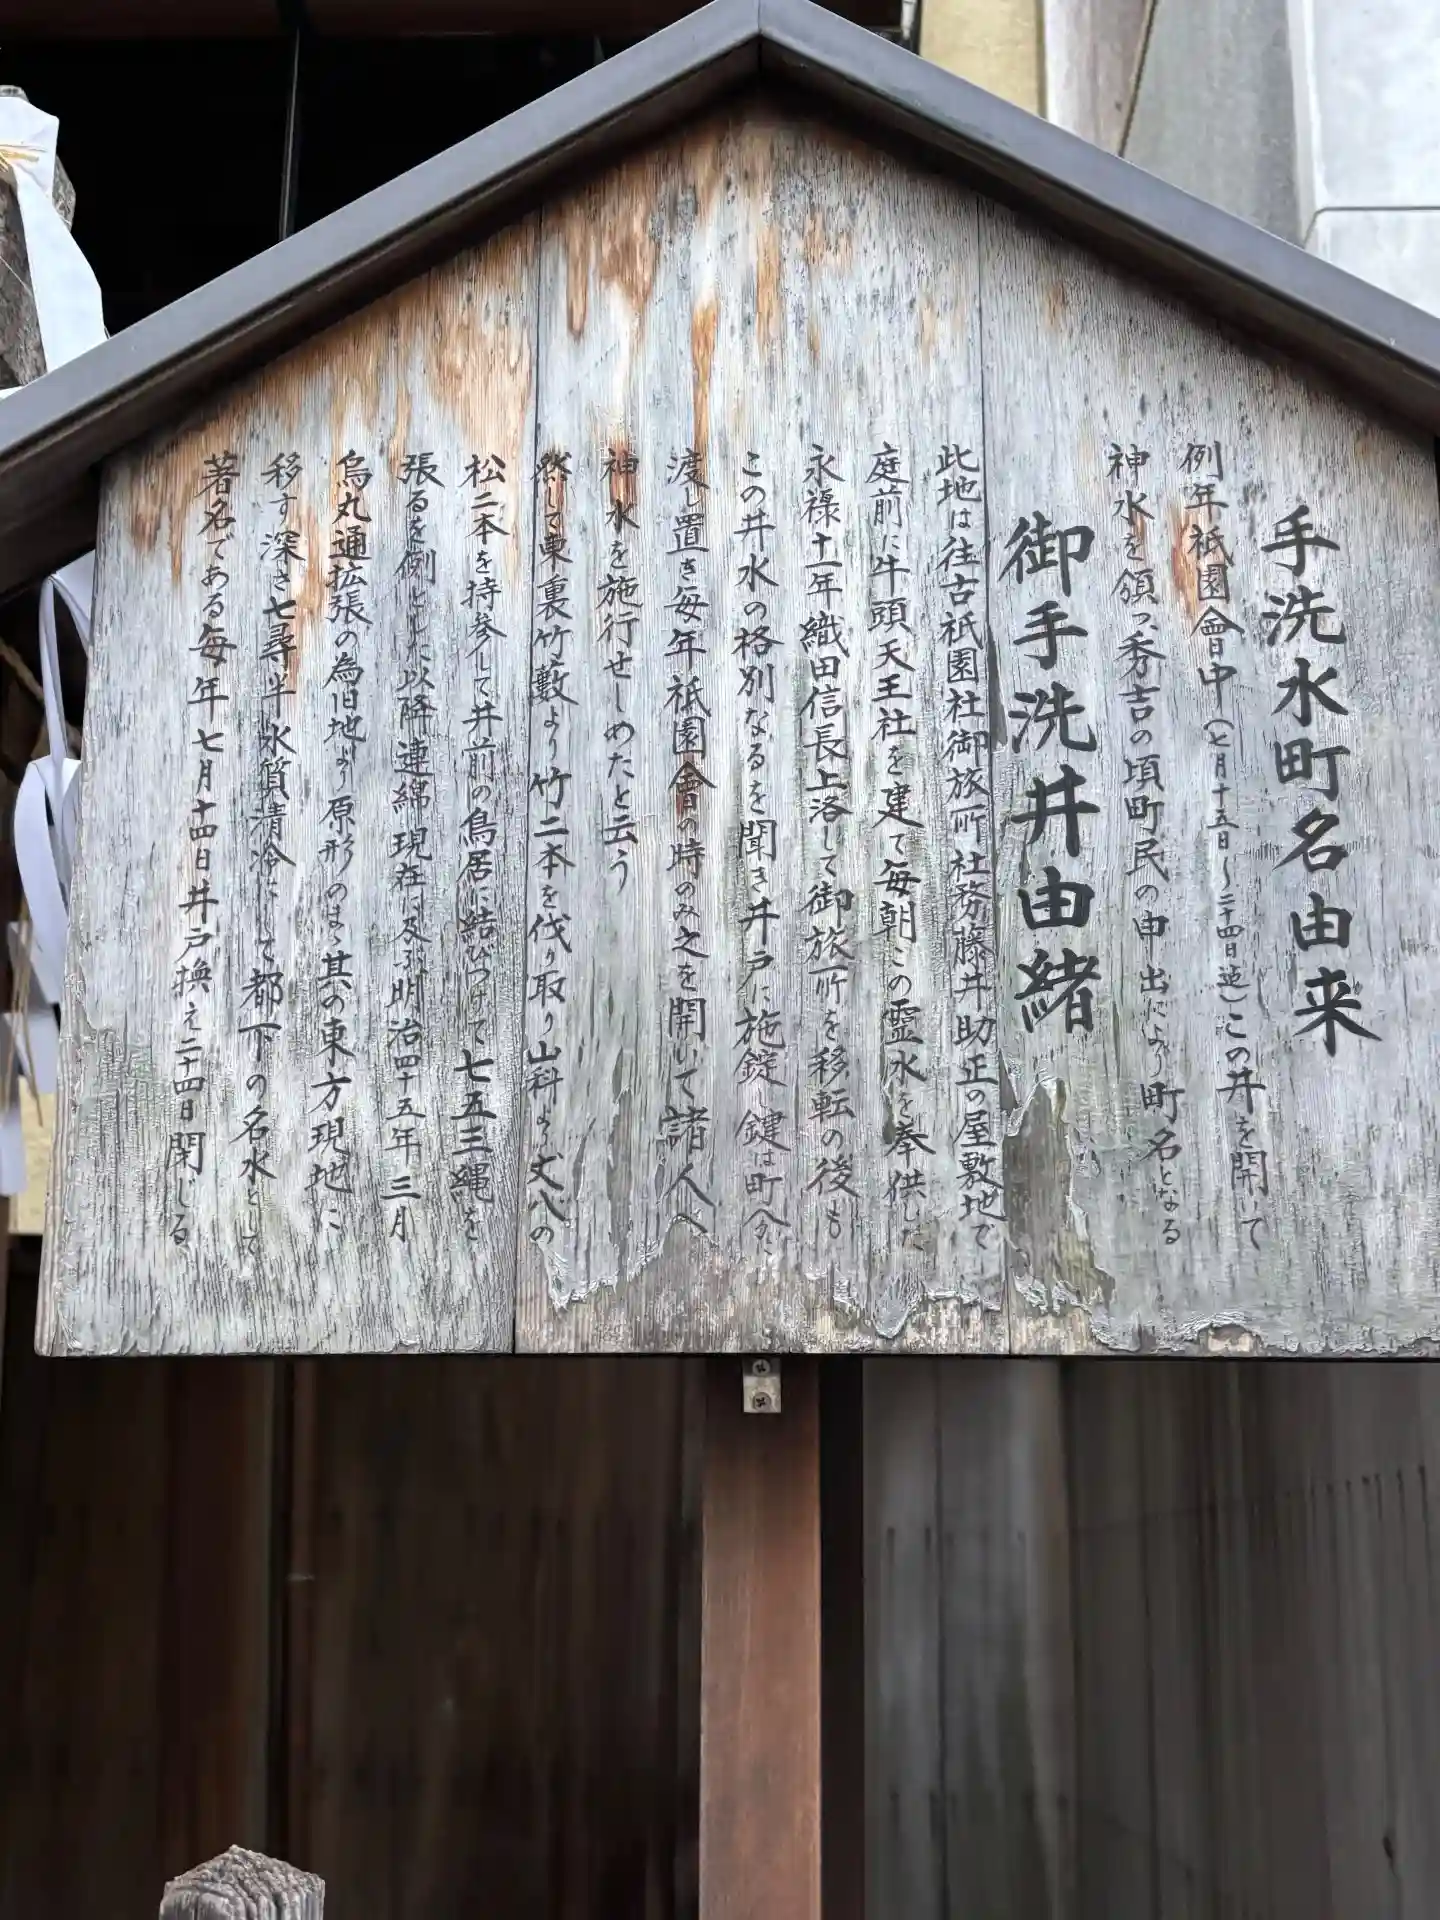 手洗水町名由来
例年祇園會中(七月十五日〜二十四日迄)この井を開いて
神水を領つ、秀吉の頃町民の申出により町名となる
御手洗井由緒
此地は往古祇園社御旅所社務藤井助正の屋敷地で
庭前に牛頭天王社を建て毎朝この霊水を奉供した
永禄十一年織田信長上洛して御旅所を移転の後も
この井水の格別なるを聞き井戸に施錠し鍵は町分へ
渡し置き毎年祇園會の時のみ之を開いて諸人へ
神水を施行せしめたと云う
然して東裏竹藪より竹二本を伐り取り山科より丈八の
松二本を持参して井前の鳥居に結びつけて七五三縄を
張るを例とした以降連綿現在に及ぶ明治四十五年三月
烏丸通拡張の為旧地より原形のまゝ其の東方現地に
移す深さ七尋半水質清冷にして都下の名水として
著名である毎年七月十四日井戸換え二十四日閉じる